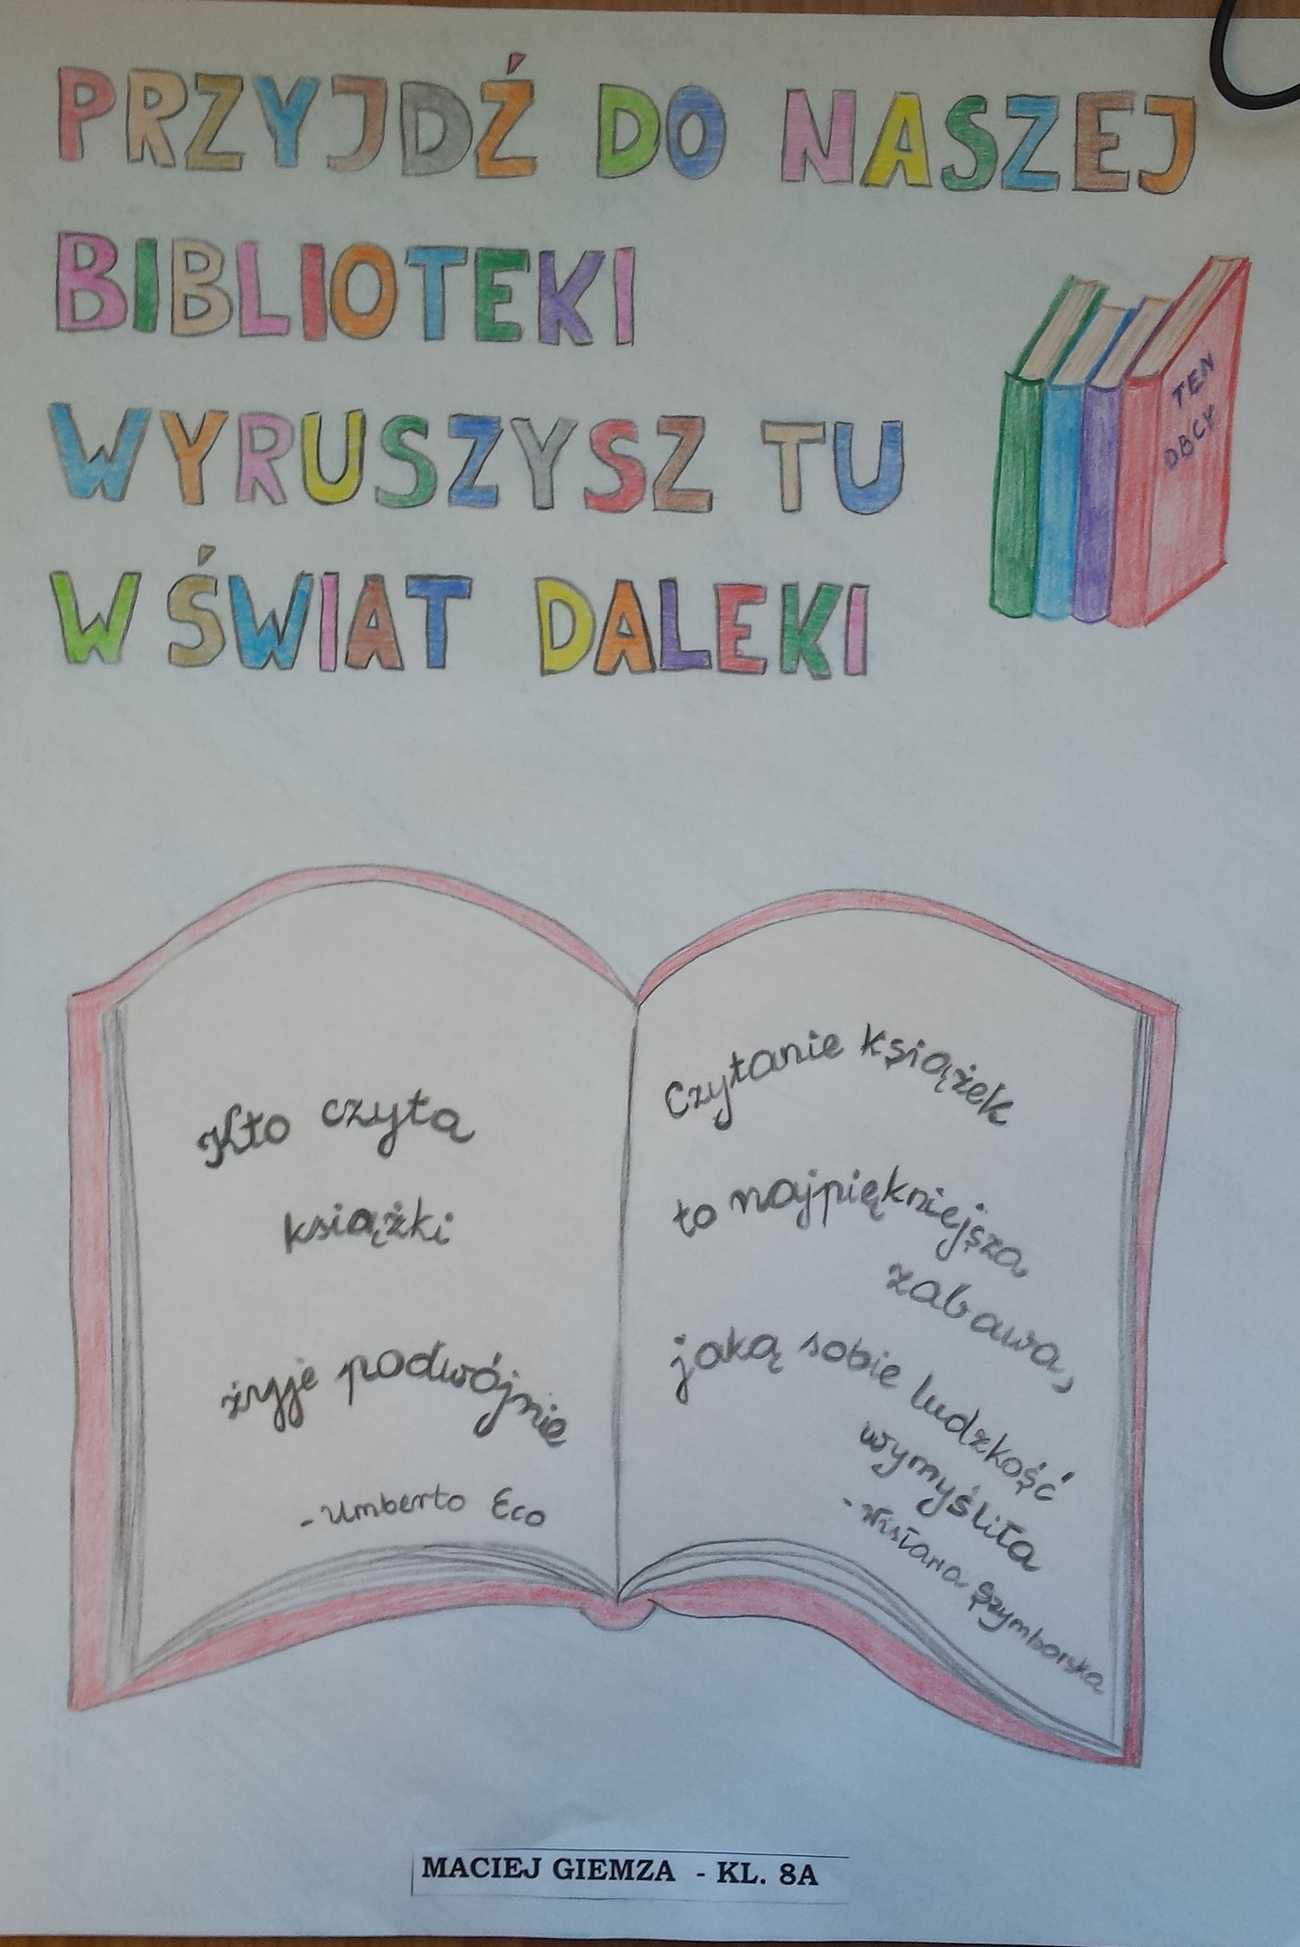 PRZYJDŹ DO NASZEJ
BIBLIOTEKI
WYRUSZYSZ TU
W ŚWIAT DALEKI
TEN
OBCY
Kto czyta
książki
żyje podwójnie
- Umberto Eco
Czytanie książek
to najpiękniejsza
zabawa,
jaką sobie ludzkość
wymyśliła
- Wisława Szymborska
MACIEJ GIEMZA - KL. 8A